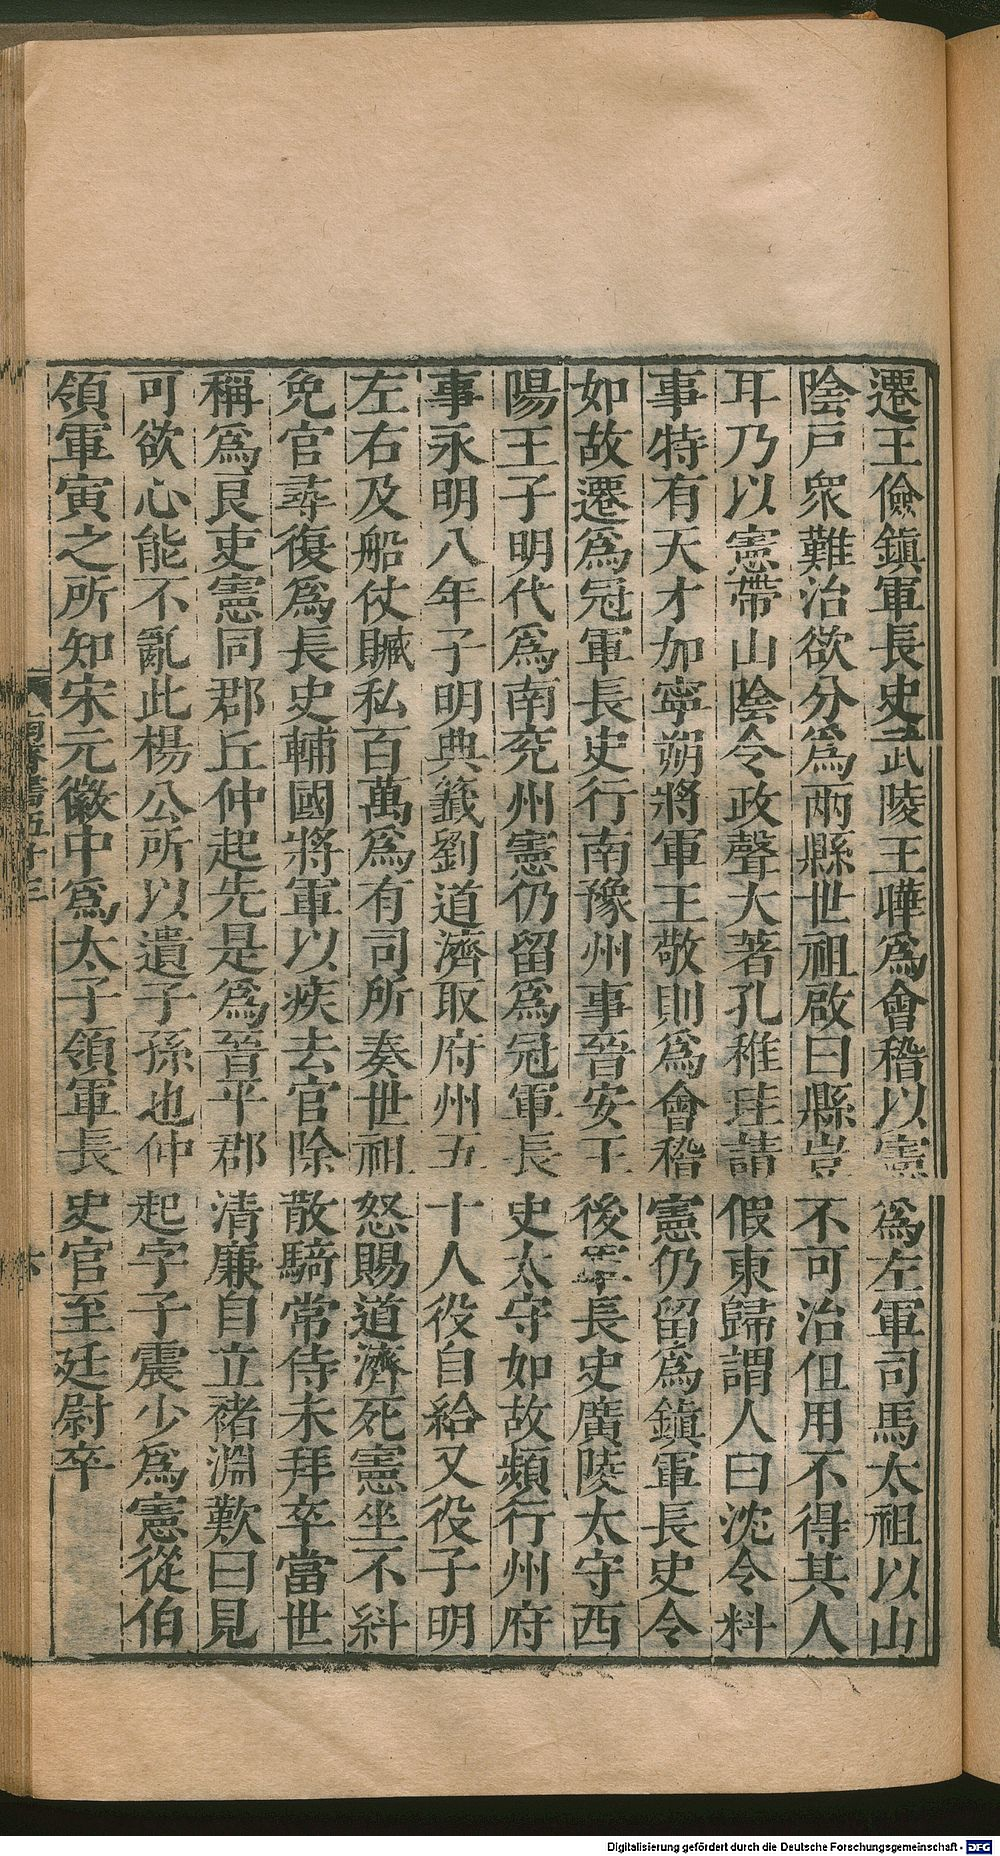 遷王儉鎮軍長史武陵王曄爲會稽以憲爲左軍司馬太祖以山
陰戸衆難治欲分爲兩縣世祖啟曰縣豈不可治但用不得其人
耳乃以憲帶山陰令政聲大著孔稚珪請假東歸謂人曰沈令料
事特有天才加寧朔將軍王敬則爲會稽憲仍留爲鎮軍長史令
如故遷爲冠軍長史行南豫州事晉安王後軍長史廣陵太守西
陽王子明代爲南兖州憲仍留爲冠軍長史太守如故頻行州府
事永明八年子明典籖劉道濟取府州五十人役自給又役子明
左右及船仗贓私百萬爲有司所奏世祖怒賜道濟死憲坐不糾
免官尋復爲長史輔國將軍以疾去官除散騎常侍未拜卒當世
稱爲良吏憲同郡丘仲起先是爲晉平郡清廉自立褚淵歎曰見
可欲心能不亂此楊公所以遺子孫也仲起字子震少爲憲從伯
領軍寅之所知宋元徽中爲太子領軍長史官至廷尉卒
南齊書五十三
六
Digitalisierung gefördert durch die Deutsche Forschungsgemeinschaft - DFG